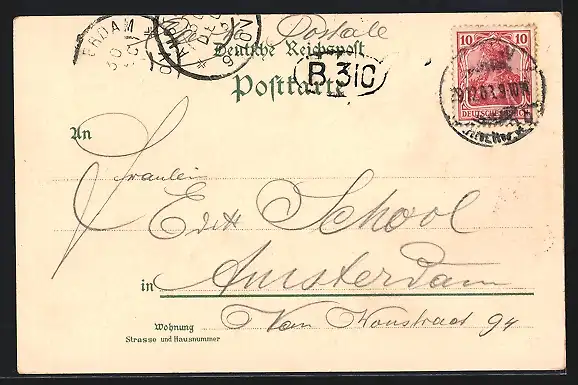 ERDAM
30
Postale
Deutsche Reichspost
B.310
Postkarte
10 10
DEUTSCHES REICH
An
Fräulein
Edith School
in Amsterdam
Wohnung
Strasse und Hausnummer
Van 94